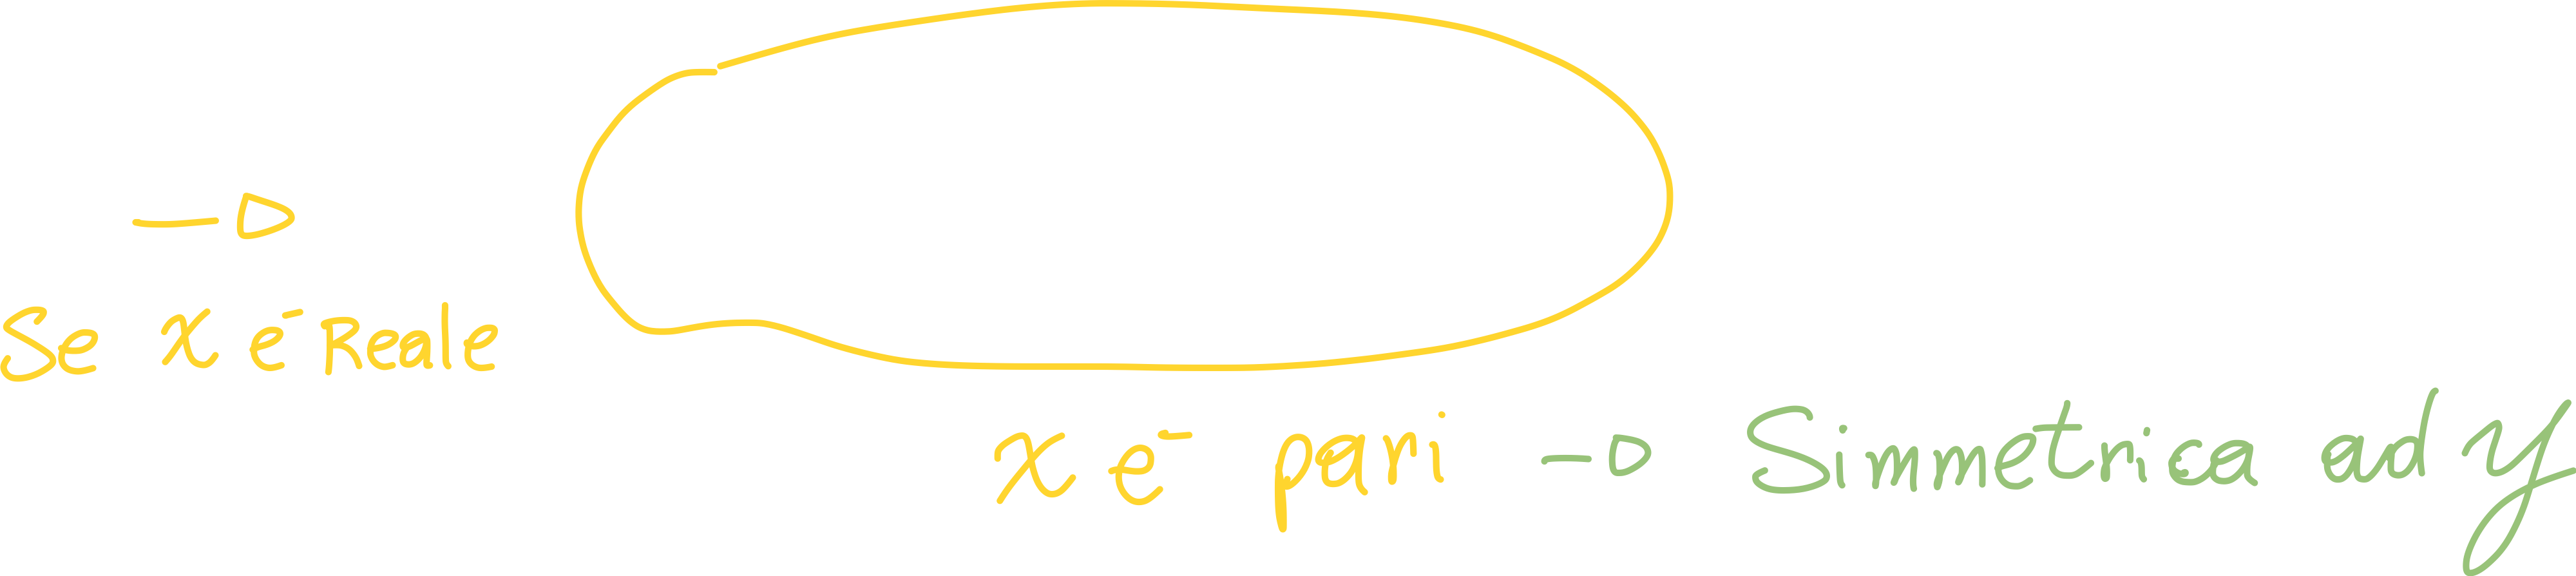 Se x è Reale
x è pari → Simmetrica ad y